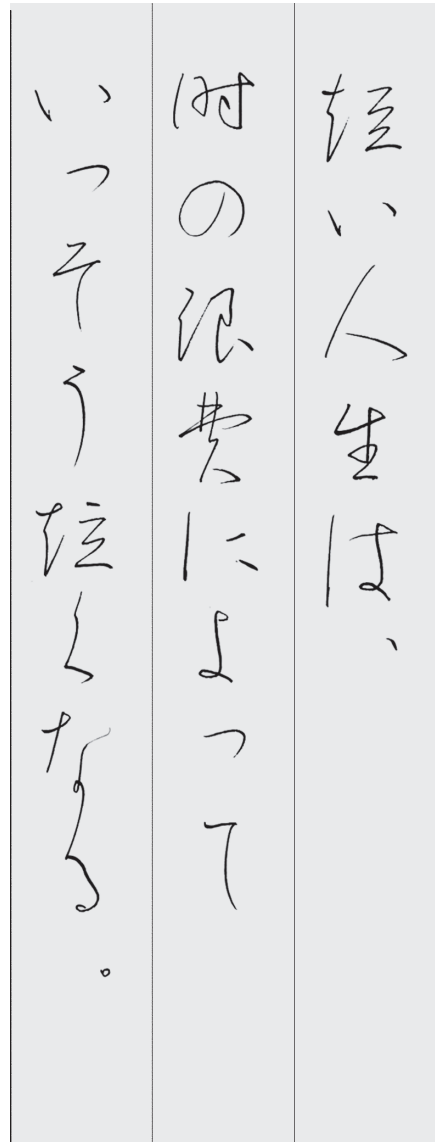 短い人生は、
時の浪費によって
いっそう短くなる。